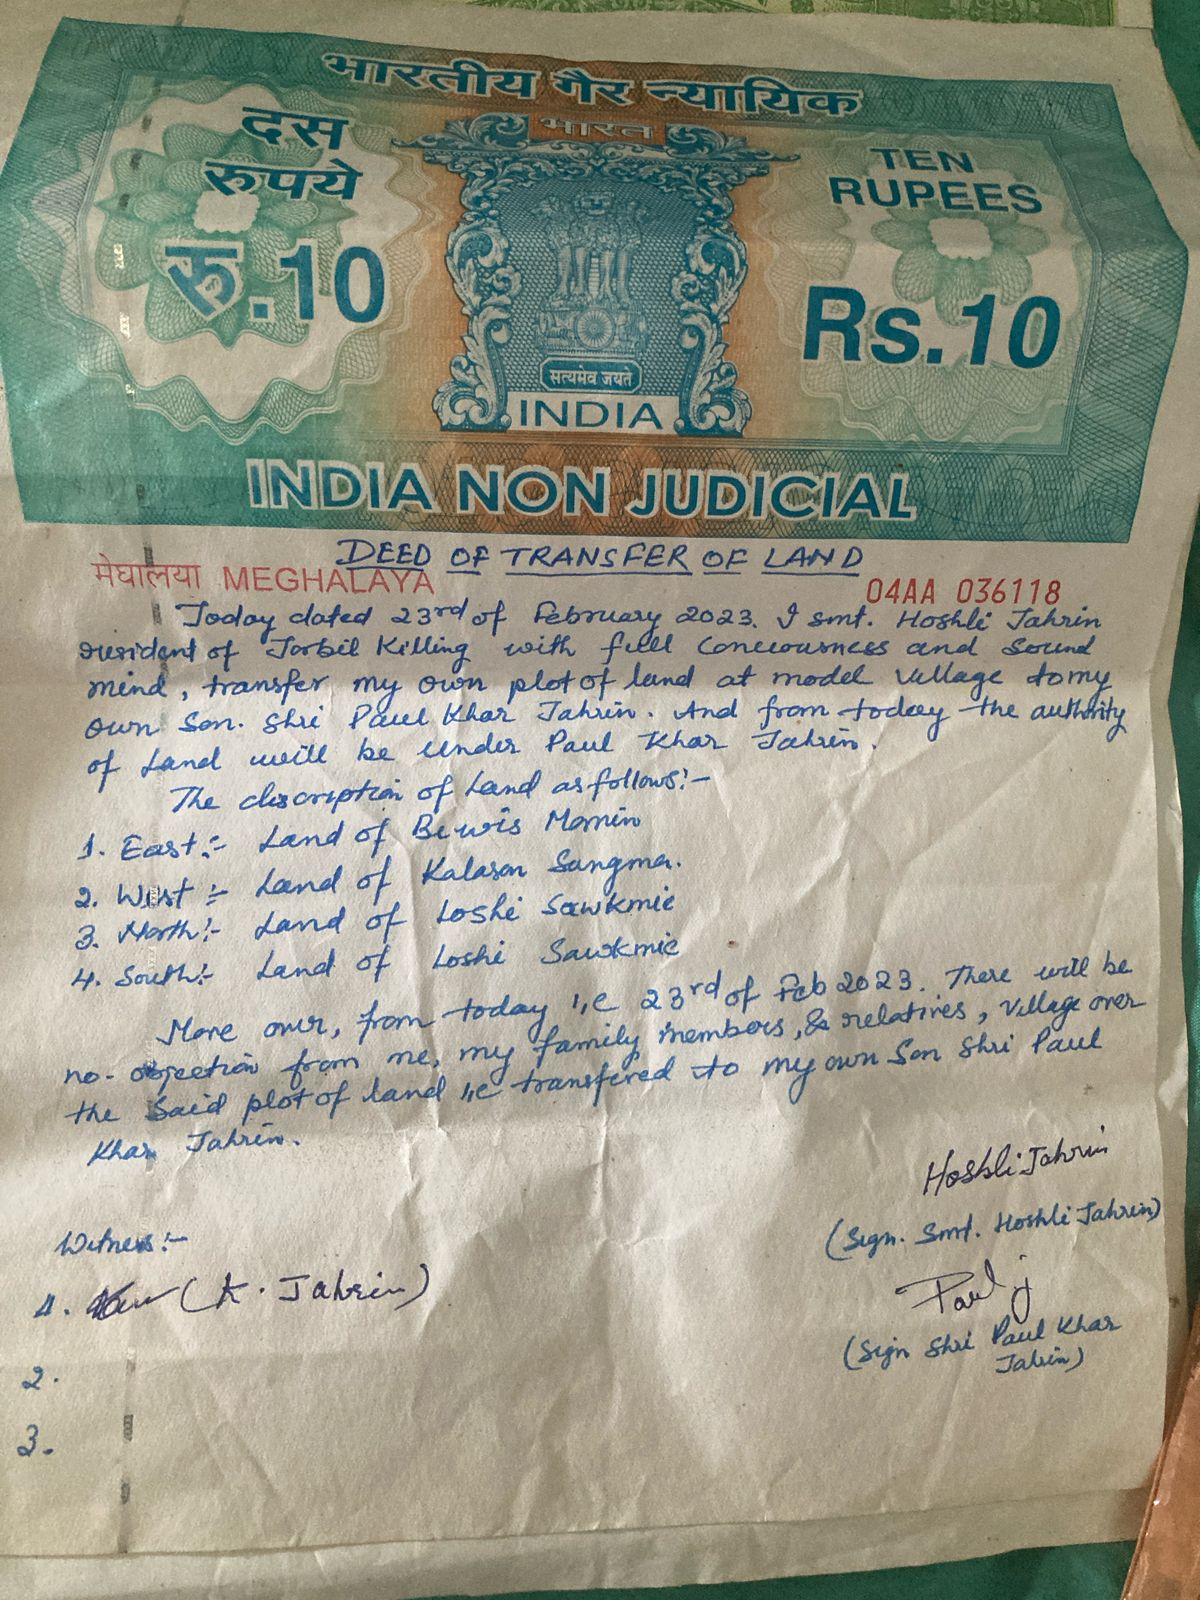 भारतीय गैर न्यायिक
भारत
दस
रुपये
रु.10
TEN
RUPEES
Rs.10
सत्यमेव जयते
INDIA
INDIA NON JUDICIAL
DEED OF TRANSFER OF LAND
मेघालया MEGHALAYA
04AA 036118
Today dated 23rd of February 2023. I smt. Hoshli Jahrin
resident of Jorbil Killing with full Conciousness and Sound
mind, transfer my own plot of land at model Village to my
own Son. Shri Paul Khar Jahrin. And from today the authority
of Land will be under Paul Khar Jahrin.
The discription of Land as follows:-
1. East:- Land of Bewis Momin
2. West:- Land of Kalason Sangma.
3. North:- Land of Loshi Sawkmie
4. South:- Land of Loshi Sawkmie
More over, from today i,e 23rd of Feb 2023. There will be
no-objection from me, my family members, & relatives, Village over
the Said plot of land i,e transfered to my own Son Shri Paul
Khar Jahrin.
Hoshli Jahrin
(Sign. Smt. Hoshli Jahrin)
Witness:-
1. (K. Jahrin)
Paul j
(Sign Shri Paul Khar
Jahin)
2.
3.